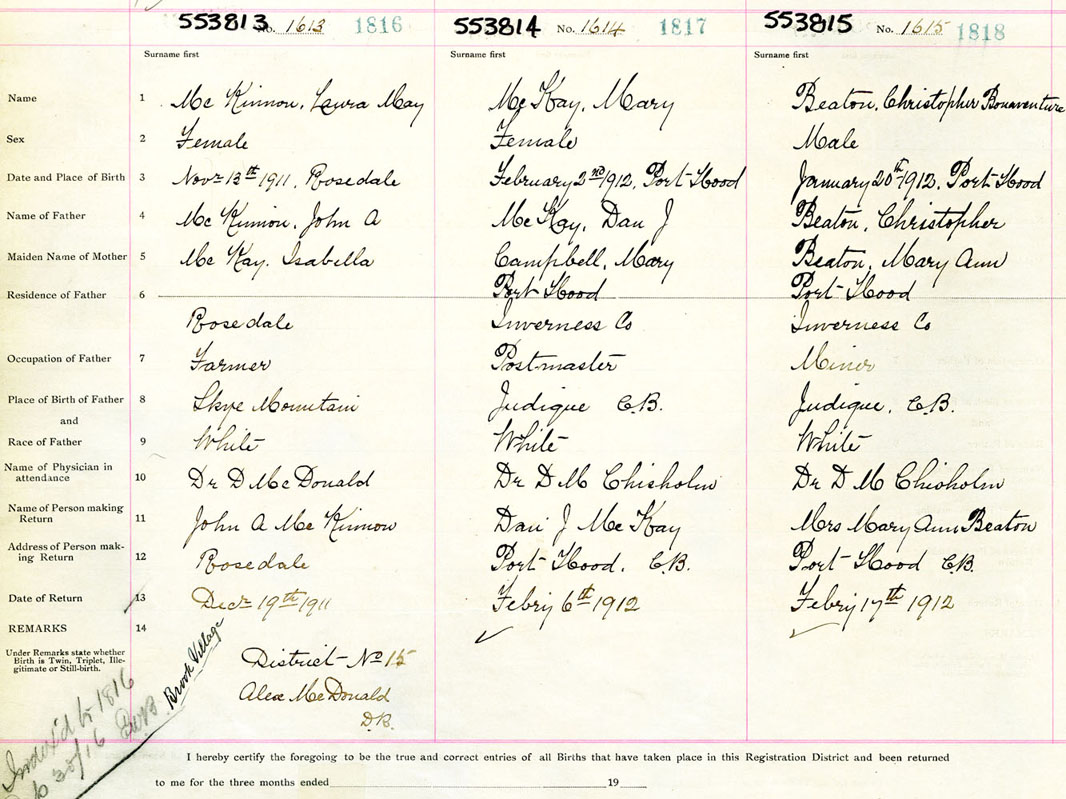 553813 No. 1613 1816 553814 No. 1614 1817 553815 No. 1615 1818
Surname first Surname first Surname first
Name 1 Mc Kinnon, Laura May Mc Kay, Mary Beaton, Christopher Bonaventure
Sex 2 Female Female Male
Date and Place of Birth 3 Novr 13th 1911, Rosedale February 2nd 1912, Port Hood January 20th 1912, Port Hood
Name of Father 4 Mc Kinnon, John A Mc Kay, Dan J Beaton, Christopher
Maiden Name of Mother 5 Mc Kay, Isabella Campbell, Mary Beaton, Mary Ann
Residence of Father 6 Port Hood Port Hood
Rosedale Inverness Co Inverness Co
Occupation of Father 7 Farmer Postmaster Miner
Place of Birth of Father 8 Skye Mountain Judique C.B. Judique, C.B.
and
Race of Father 9 White White White
Name of Physician in
attendance 10 Dr D McDonald Dr D M Chisholm Dr D M Chisholm
Name of Person making
Return 11 John A Mc Kinnon Dan J Mc Kay Mrs Mary Ann Beaton
Address of Person mak-
ing Return 12 Rosedale Port Hood, C.B. Port Hood C.B.
Date of Return 13 Decr 19th 1911 Febry 6th 1912 Febry 17th 1912
REMARKS 14
Under Remarks state whether
Birth is Twin, Triplet, Ille-
gitimate or Still-birth.
District No 15
Alex McDonald
D.R.
Brook Village
1816
I hereby certify the foregoing to be the true and correct entries of all Births that have taken place in this Registration District and been returned
to me for the three months ended 19